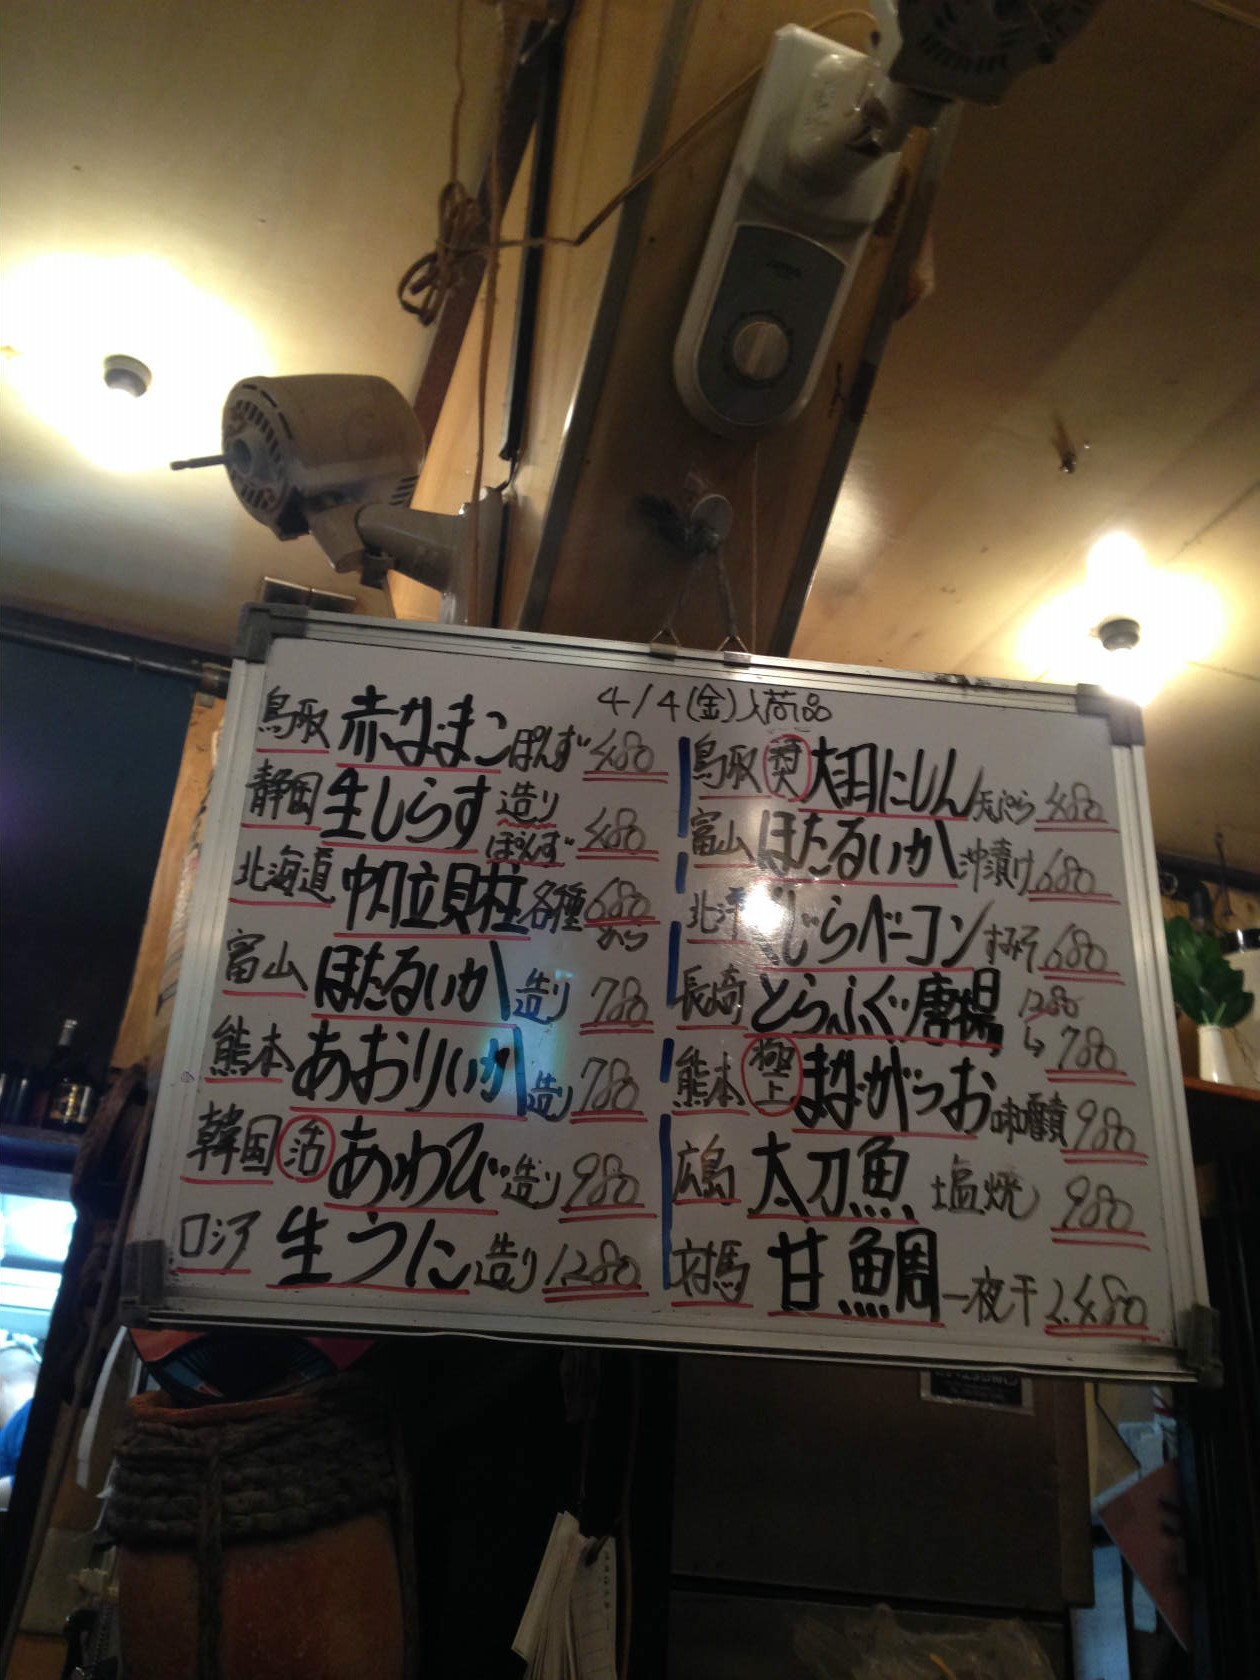 4/4(金)入荷品
鳥取 赤なまこ ぽんず 480
静岡 生しらす 造り ぽんず 480
北海道 帆立貝柱 各種 680から
富山 ほたるいか 造り 780
熊本 あおりいか 造り 780
韓国 活 あわび 造り 980
ロシア 生うに 造り 1280
鳥取 奨 大羽にしん 天ぷら 480
富山 ほたるいか 沖漬け 680
じらベーコン すみそ 680
長崎 とらふぐ唐揚 1280→780
熊本 極上 まながつお 味噌漬 980
広島 太刀魚 塩焼 980
対馬 甘鯛 一夜干 2,480